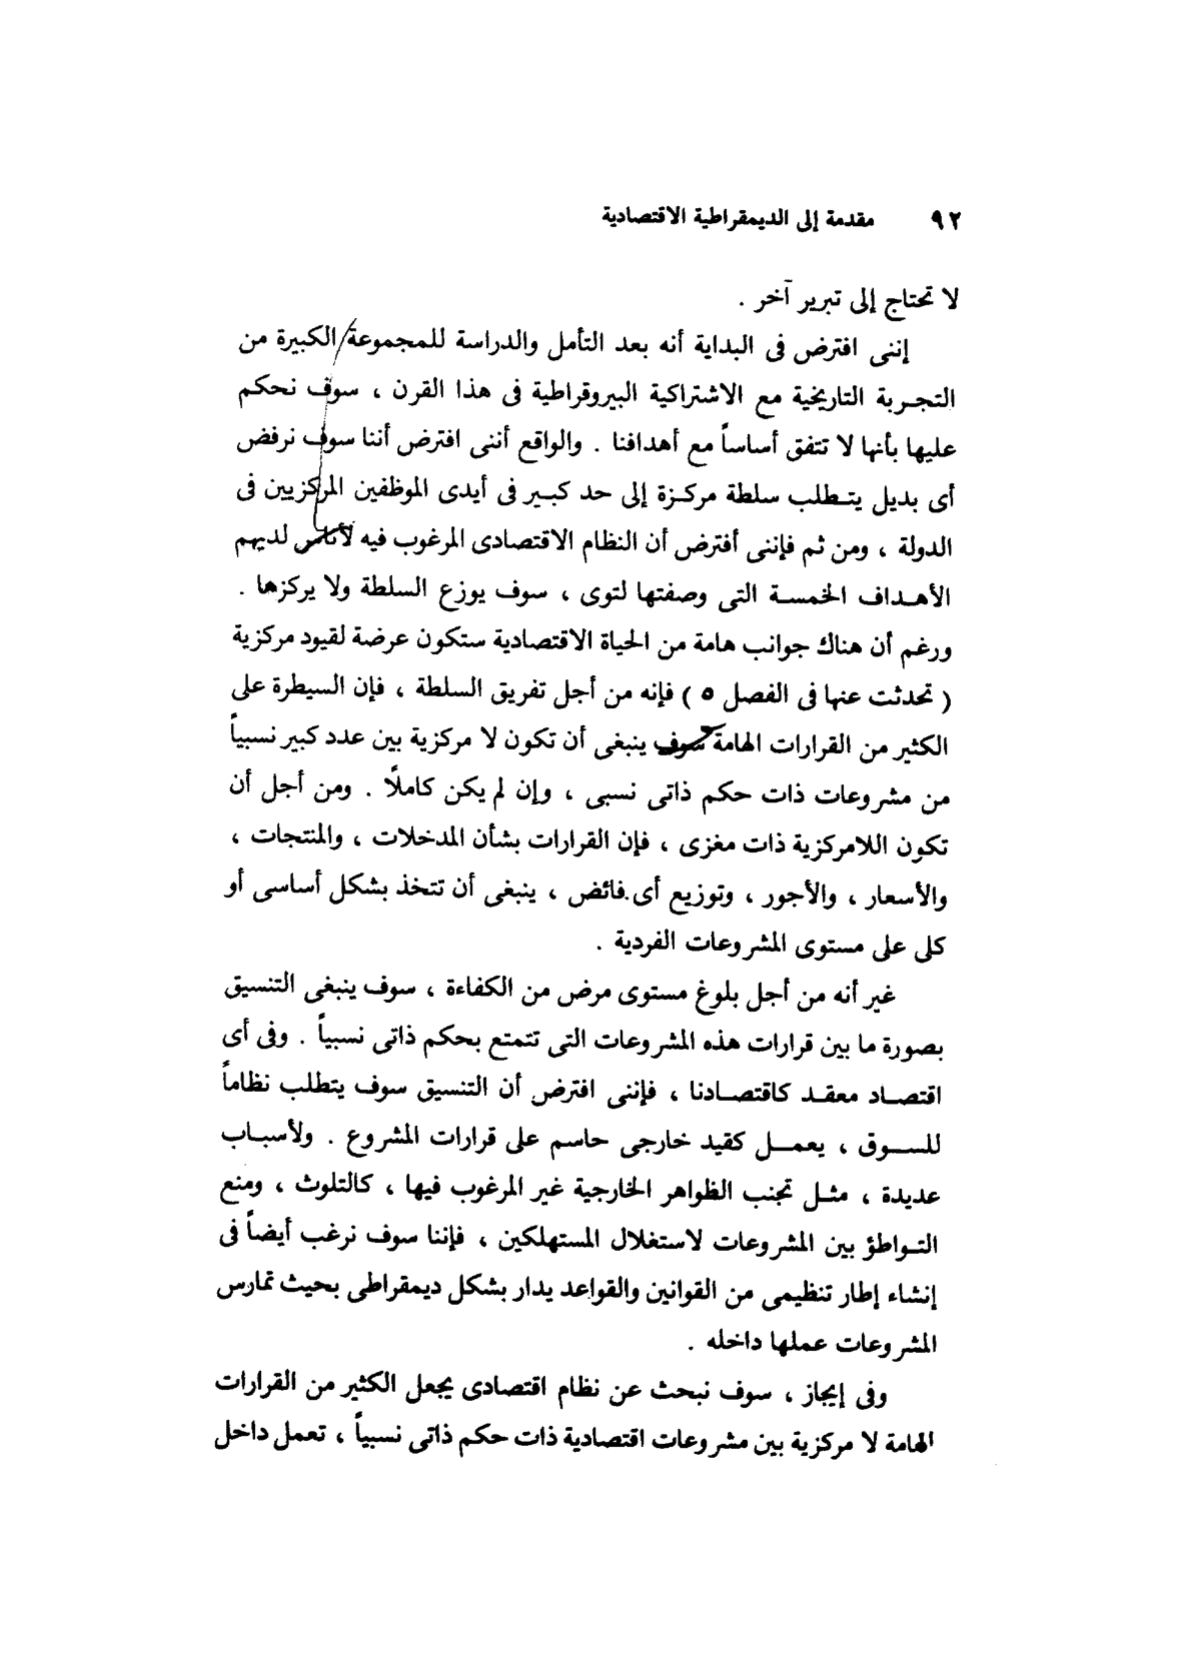 ٩٢ مقدمة إلى الديمقراطية الاقتصادية
لا تحتاج إلى تبرير آخر .
إننى افترض فى البداية أنه بعد التأمل والدراسة للمجموعة الكبيرة من
التجربة التاريخية مع الاشتراكية البيروقراطية فى هذا القرن ، سوف نحكم
عليها بأنها لا تتفق أساساً مع أهدافنا . والواقع أننى افترض أننا سوف نرفض
أى بديل يتطلب سلطة مركزة إلى حد كبير فى أيدى الموظفين المركزيين فى
الدولة ، ومن ثم فإننى أفترض أن النظام الاقتصادى المرغوب فيه لأناس لديهم
الأهداف الخمسة التى وصفتها لتوى ، سوف يوزع السلطة ولا يركزها .
ورغم أن هناك جوانب هامة من الحياة الاقتصادية ستكون عرضة لقيود مركزية
( تحدثت عنها فى الفصل ٥ ) فإنه من أجل تفريق السلطة ، فإن السيطرة على
الكثير من القرارات الهامة سوف ينبغى أن تكون لا مركزية بين عدد كبير نسبياً
من مشروعات ذات حكم ذاتى نسبى ، وإن لم يكن كاملاً . ومن أجل أن
تكون اللامركزية ذات مغزى ، فإن القرارات بشأن المدخلات ، والمنتجات ،
والأسعار ، والأجور ، وتوزيع أى فائض ، ينبغى أن تتخذ بشكل أساسى أو
كلى على مستوى المشروعات الفردية .
غير أنه من أجل بلوغ مستوى مرض من الكفاءة ، سوف ينبغى التنسيق
بصورة ما بين قرارات هذه المشروعات التى تتمتع بحكم ذاتى نسبياً . وفى أى
اقتصاد معقد كاقتصادنا ، فإننى افترض أن التنسيق سوف يتطلب نظاماً
للسوق ، يعمل كقيد خارجى حاسم على قرارات المشروع . ولأسباب
عديدة ، مثل تجنب الظواهر الخارجية غير المرغوب فيها ، كالتلوث ، ومنع
التواطؤ بين المشروعات لاستغلال المستهلكين ، فإننا سوف نرغب أيضاً فى
إنشاء إطار تنظيمى من القوانين والقواعد يدار بشكل ديمقراطى بحيث تمارس
المشروعات عملها داخله .
وفى إيجاز ، سوف نبحث عن نظام اقتصادى يجعل الكثير من القرارات
الهامة لا مركزية بين مشروعات اقتصادية ذات حكم ذاتى نسبياً ، تعمل داخل